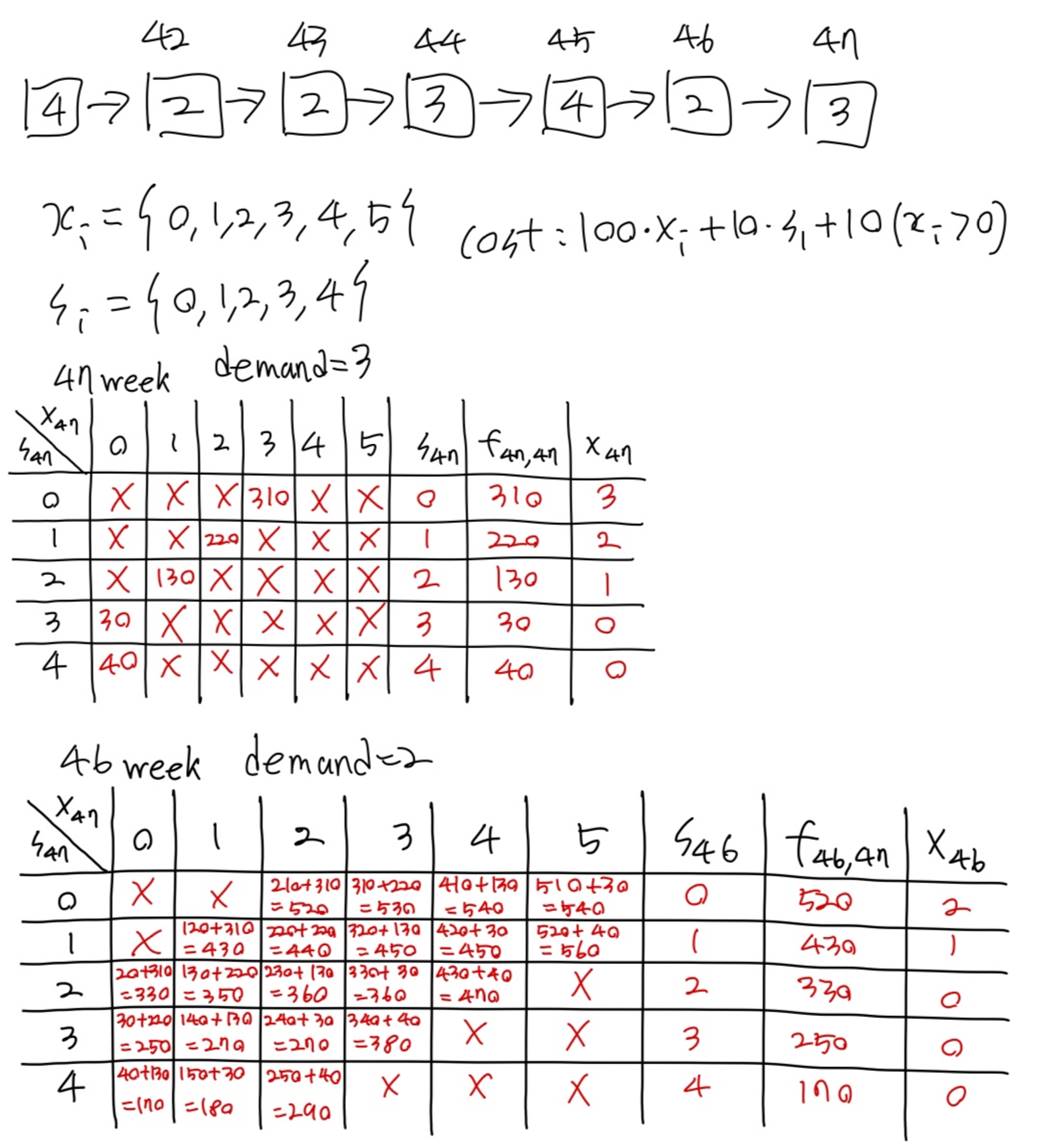 42 43 44 45 46 47
4 → 2 → 2 → 3 → 4 → 2 → 3
xᵢ = {0, 1, 2, 3, 4, 5} cost : 100·xᵢ + 10·sᵢ + 10(xᵢ>0)
sᵢ = {0, 1, 2, 3, 4}
47 week demand=3
s₄₇ x₄₇ 0 1 2 3 4 5 s₄₇ f₄₇,₄₇ x₄₇
0 X X X 310 X X 0 310 3
1 X X 220 X X X 1 220 2
2 X 130 X X X X 2 130 1
3 30 X X X X X 3 30 0
4 40 X X X X X 4 40 0
46 week demand=2
s₄₇ x₄₇ 0 1 2 3 4 5 s₄₆ f₄₆,₄₇ x₄₆
0 X X 210+310 =520 310+220 =530 410+130 =540 510+30 =540 0 520 2
1 X 120+310 =430 220+220 =440 320+130 =450 420+30 =450 520+40 =560 1 430 1
2 20+310 =330 130+220 =350 230+130 =360 330+30 =360 430+40 =470 X 2 330 0
3 30+220 =250 140+130 =270 240+30 =270 340+40 =380 X X 3 250 0
4 40+130 =170 150+30 =180 250+40 =290 X X X 4 170 0